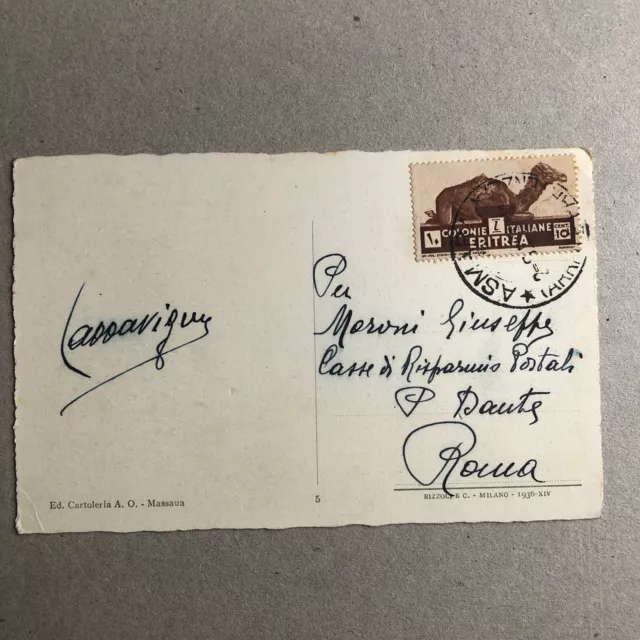 COLONIE ITALIANE
١٠ ERITREA CENT. 10
ASM
Per
Moroni Giuseppe
Casse di Risparmio Postali
P Dante
Roma
Ed. Cartoleria A. O. - Massaua
5
RIZZOLI E C. - MILANO - 1936-XIV